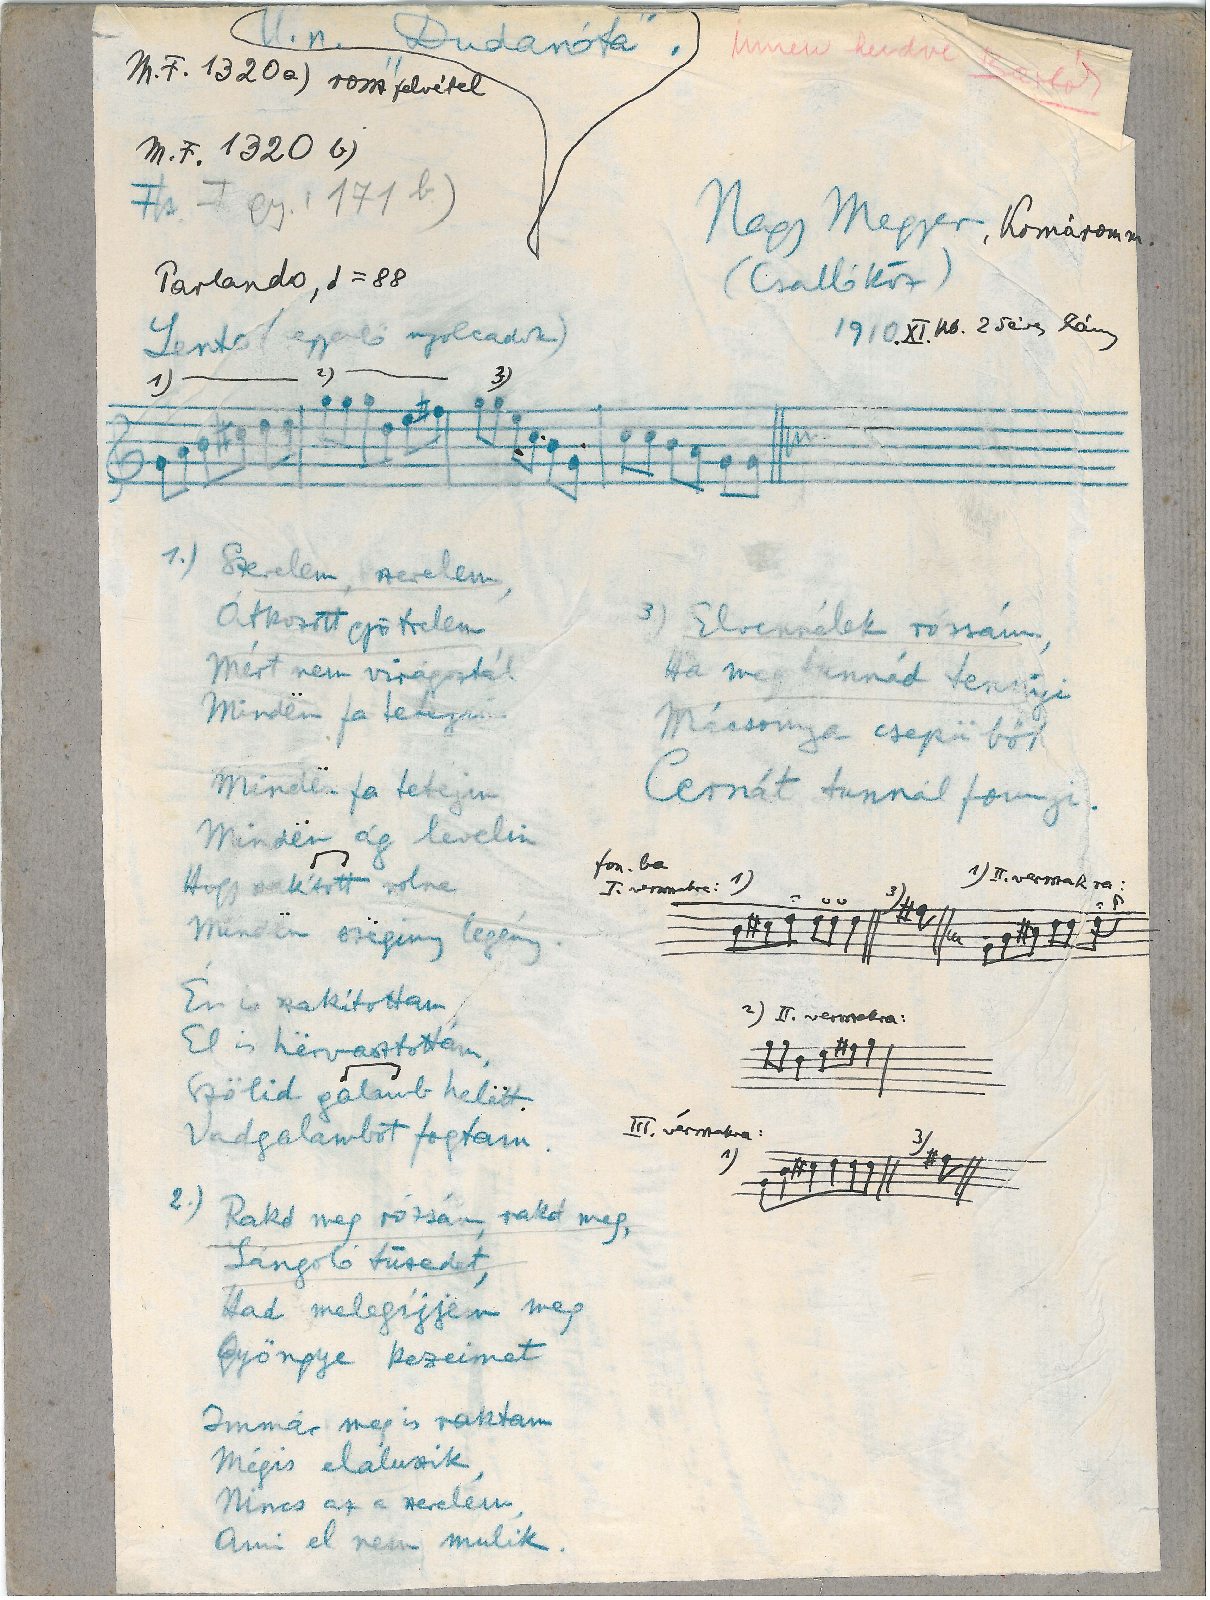 U.n. "Dudanóta".
Innen kezdve
M.F. 1320a) rossz felvétel
M.F. 1320 b)
F gy.: 171 b)
Nagy Megyer, Komárom m.
(Csallóköz)
1910. XI. hó. 25 éves lány
Parlando, ♩ = 88
Lento (egyenlő nyolcadok)
1) 2) 3)
1.) Szerelem, szerelem,
Átkozott gyötrelem
Mért nem virágoztál
Mindën fa tetején
Mindën fa tetején
Mindën ág levelin
Hogy szakított volna
Mindën szëginy legény.
Én is szakítottam
El is hërvasztottam,
Szölid galamb helëtt
Vadgalambot fogtam.
2.) Rakd meg rózsám, rakd meg,
Lángoló tüzedet,
Had melegíjjem meg
Gyöngye kezeimet
Immár meg is raktam
Mégis eláluszik,
Nincs az a szerelëm,
Ami el nem mulik.
3) Elvennélek rózsám,
Ha megtunnád tennyi
Mácsonya csepüből
Cernát tunnál fonnyi.
fon. ba
I. versszakra: 1) 3) 1) II. versszakra:
2) II. versszakra:
III. versszakra:
1) 3)